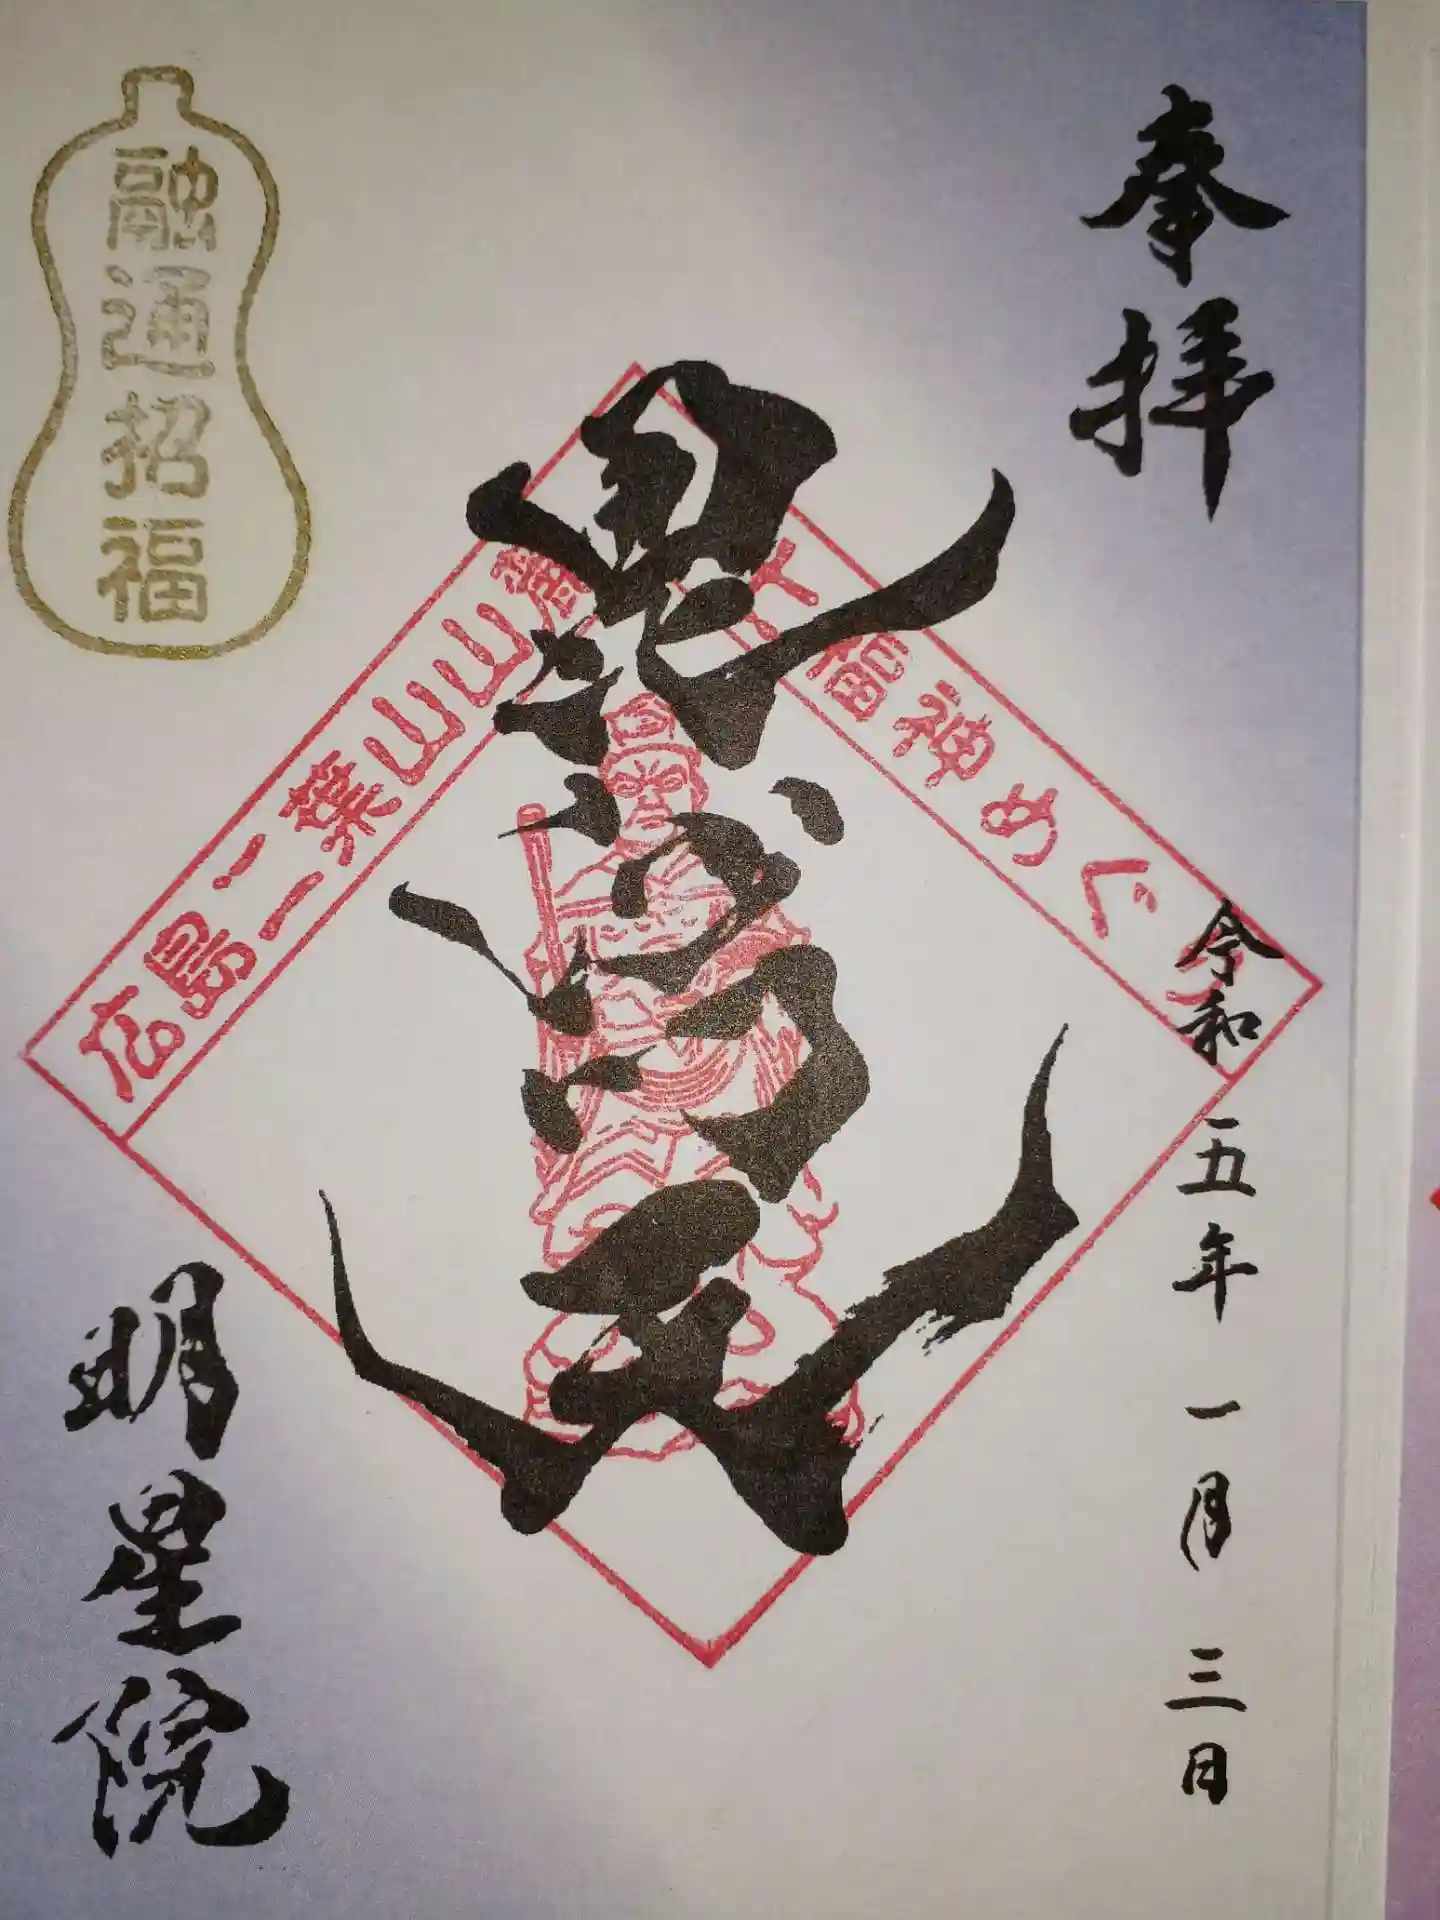 奉拝
令和五年一月三日
毘沙門天
広島二葉山山麓
七福神めぐり
融通招福
明星院